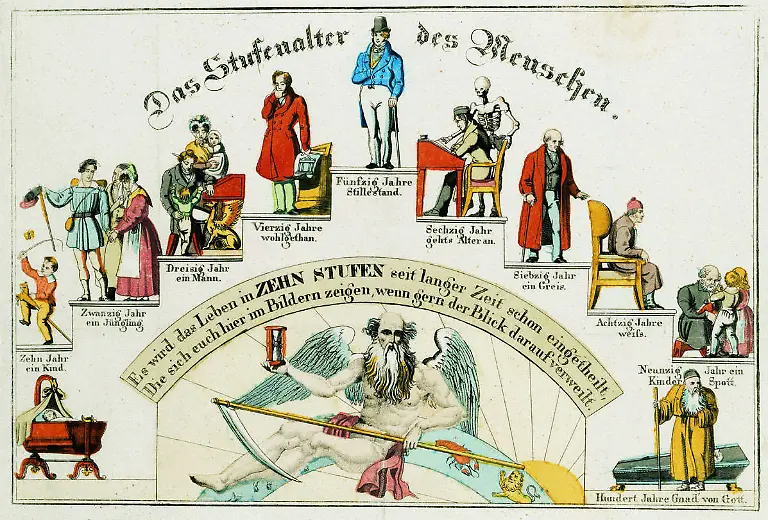 Das Stufenalter des Menschen.
Fünfzig Jahre
Stillestand.
Vierzig Jahre
wohlgethan.
Sechzig Jahr
gehts Alter an.
Dreisig Jahr
ein Mann.
Siebzig Jahr
ein Greis.
Zwanzig Jahr
ein Jüngling.
Achtzig Jahre
weiss.
Zehn Jahr
ein Kind.
Neunzig Jahr ein
Kinder Spott.
Es wird das Leben in ZEHN STUFEN seit langer Zeit schon eingetheilt,
Die sich euch hier im Bildern zeigen, wenn gern der Blick darauf verweilt.
Hundert Jahre Gnad von Gott.